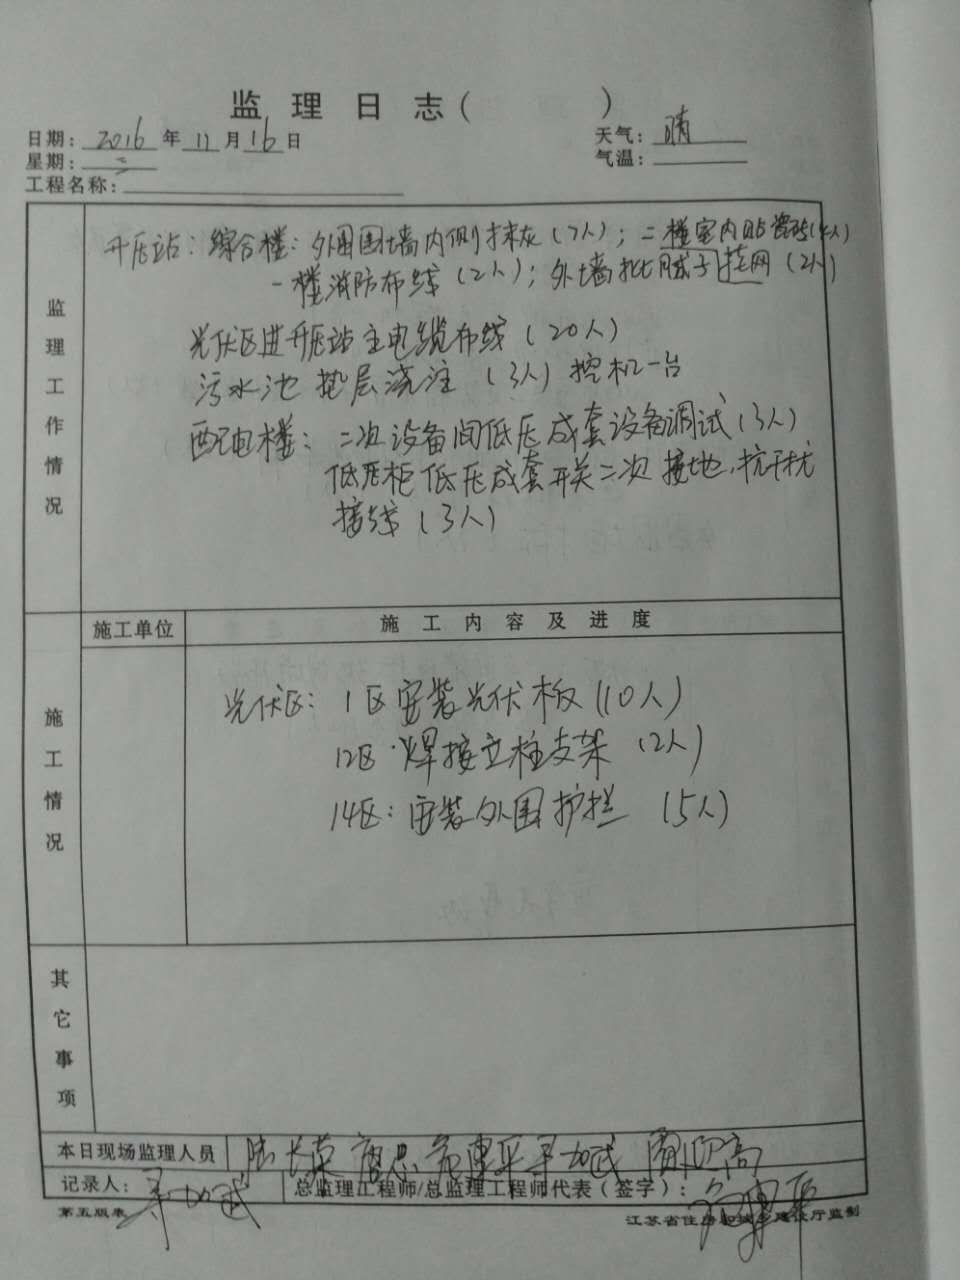 监理日志(　　　)
日期: 2016 年 11 月 16 日
天气: 晴
星期: 三
气温:
工程名称:
监理工作情况
开压站: 综合楼: 外围围墙内侧抹灰(7人); 二楼室内贴瓷砖(4人)
一楼消防布线(2人); 外墙批腻子挂网(2人)
光伏区进开压站主电缆布线(20人)
污水池垫层浇注(3人) 挖机一台
配电楼: 二次设备间低压成套设备调试(3人)
低压柜低压成套开关二次接地,抗干扰
接线(3人)
施工情况
施工单位
施工内容及进度
光伏区: 1区安装光伏板(10人)
12区:焊接立柱支架(2人)
14区:安装外围护栏(5人)
其它事项
本日现场监理人员
记录人:
总监理工程师/总监理工程师代表(签字):
第五版表
江苏省住房和城乡建设厅监制